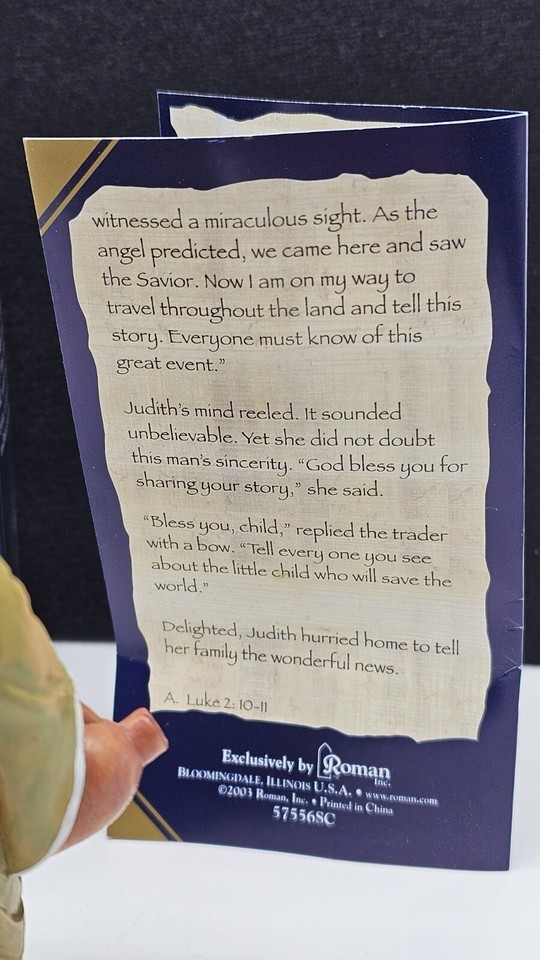 witnessed a miraculous sight. As the
angel predicted, we came here and saw
the Savior. Now I am on my way to
travel throughout the land and tell this
story. Everyone must know of this
great event.”
Judith’s mind reeled. It sounded
unbelievable. Yet she did not doubt
this man’s sincerity. “God bless you for
sharing your story,” she said.
“Bless you, child,” replied the trader
with a bow. “Tell every one you see
about the little child who will save the
world.”
Delighted, Judith hurried home to tell
her family the wonderful news.
A. Luke 2: 10-11
Exclusively by Roman Inc.
Bloomingdale, Illinois U.S.A. • www.roman.com
©2003 Roman, Inc. • Printed in China
57556SC